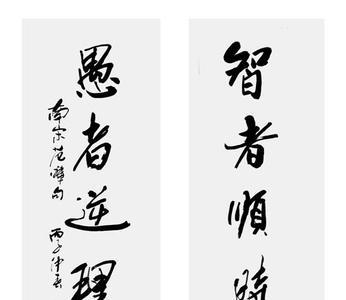 智者順時
愚者逆理
南宋范曄句